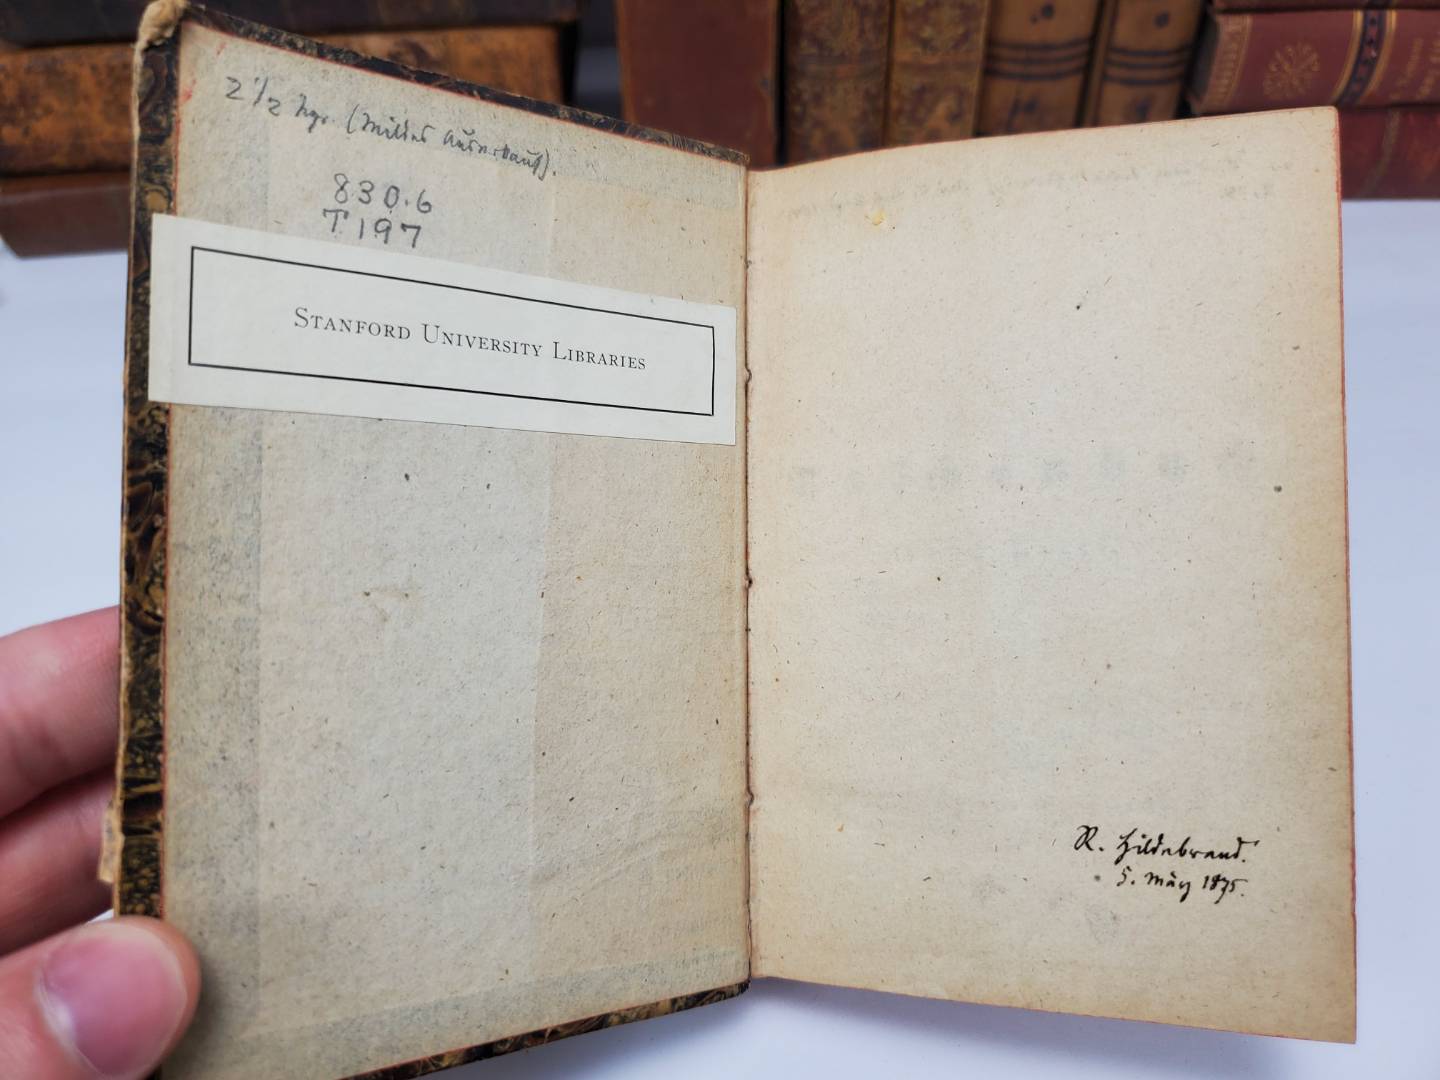 2 1/2 Ngr. (Mildes Ausverkauf).
830.6
T197
STANFORD UNIVERSITY LIBRARIES
R. Hildebrand.
5. März 1875.